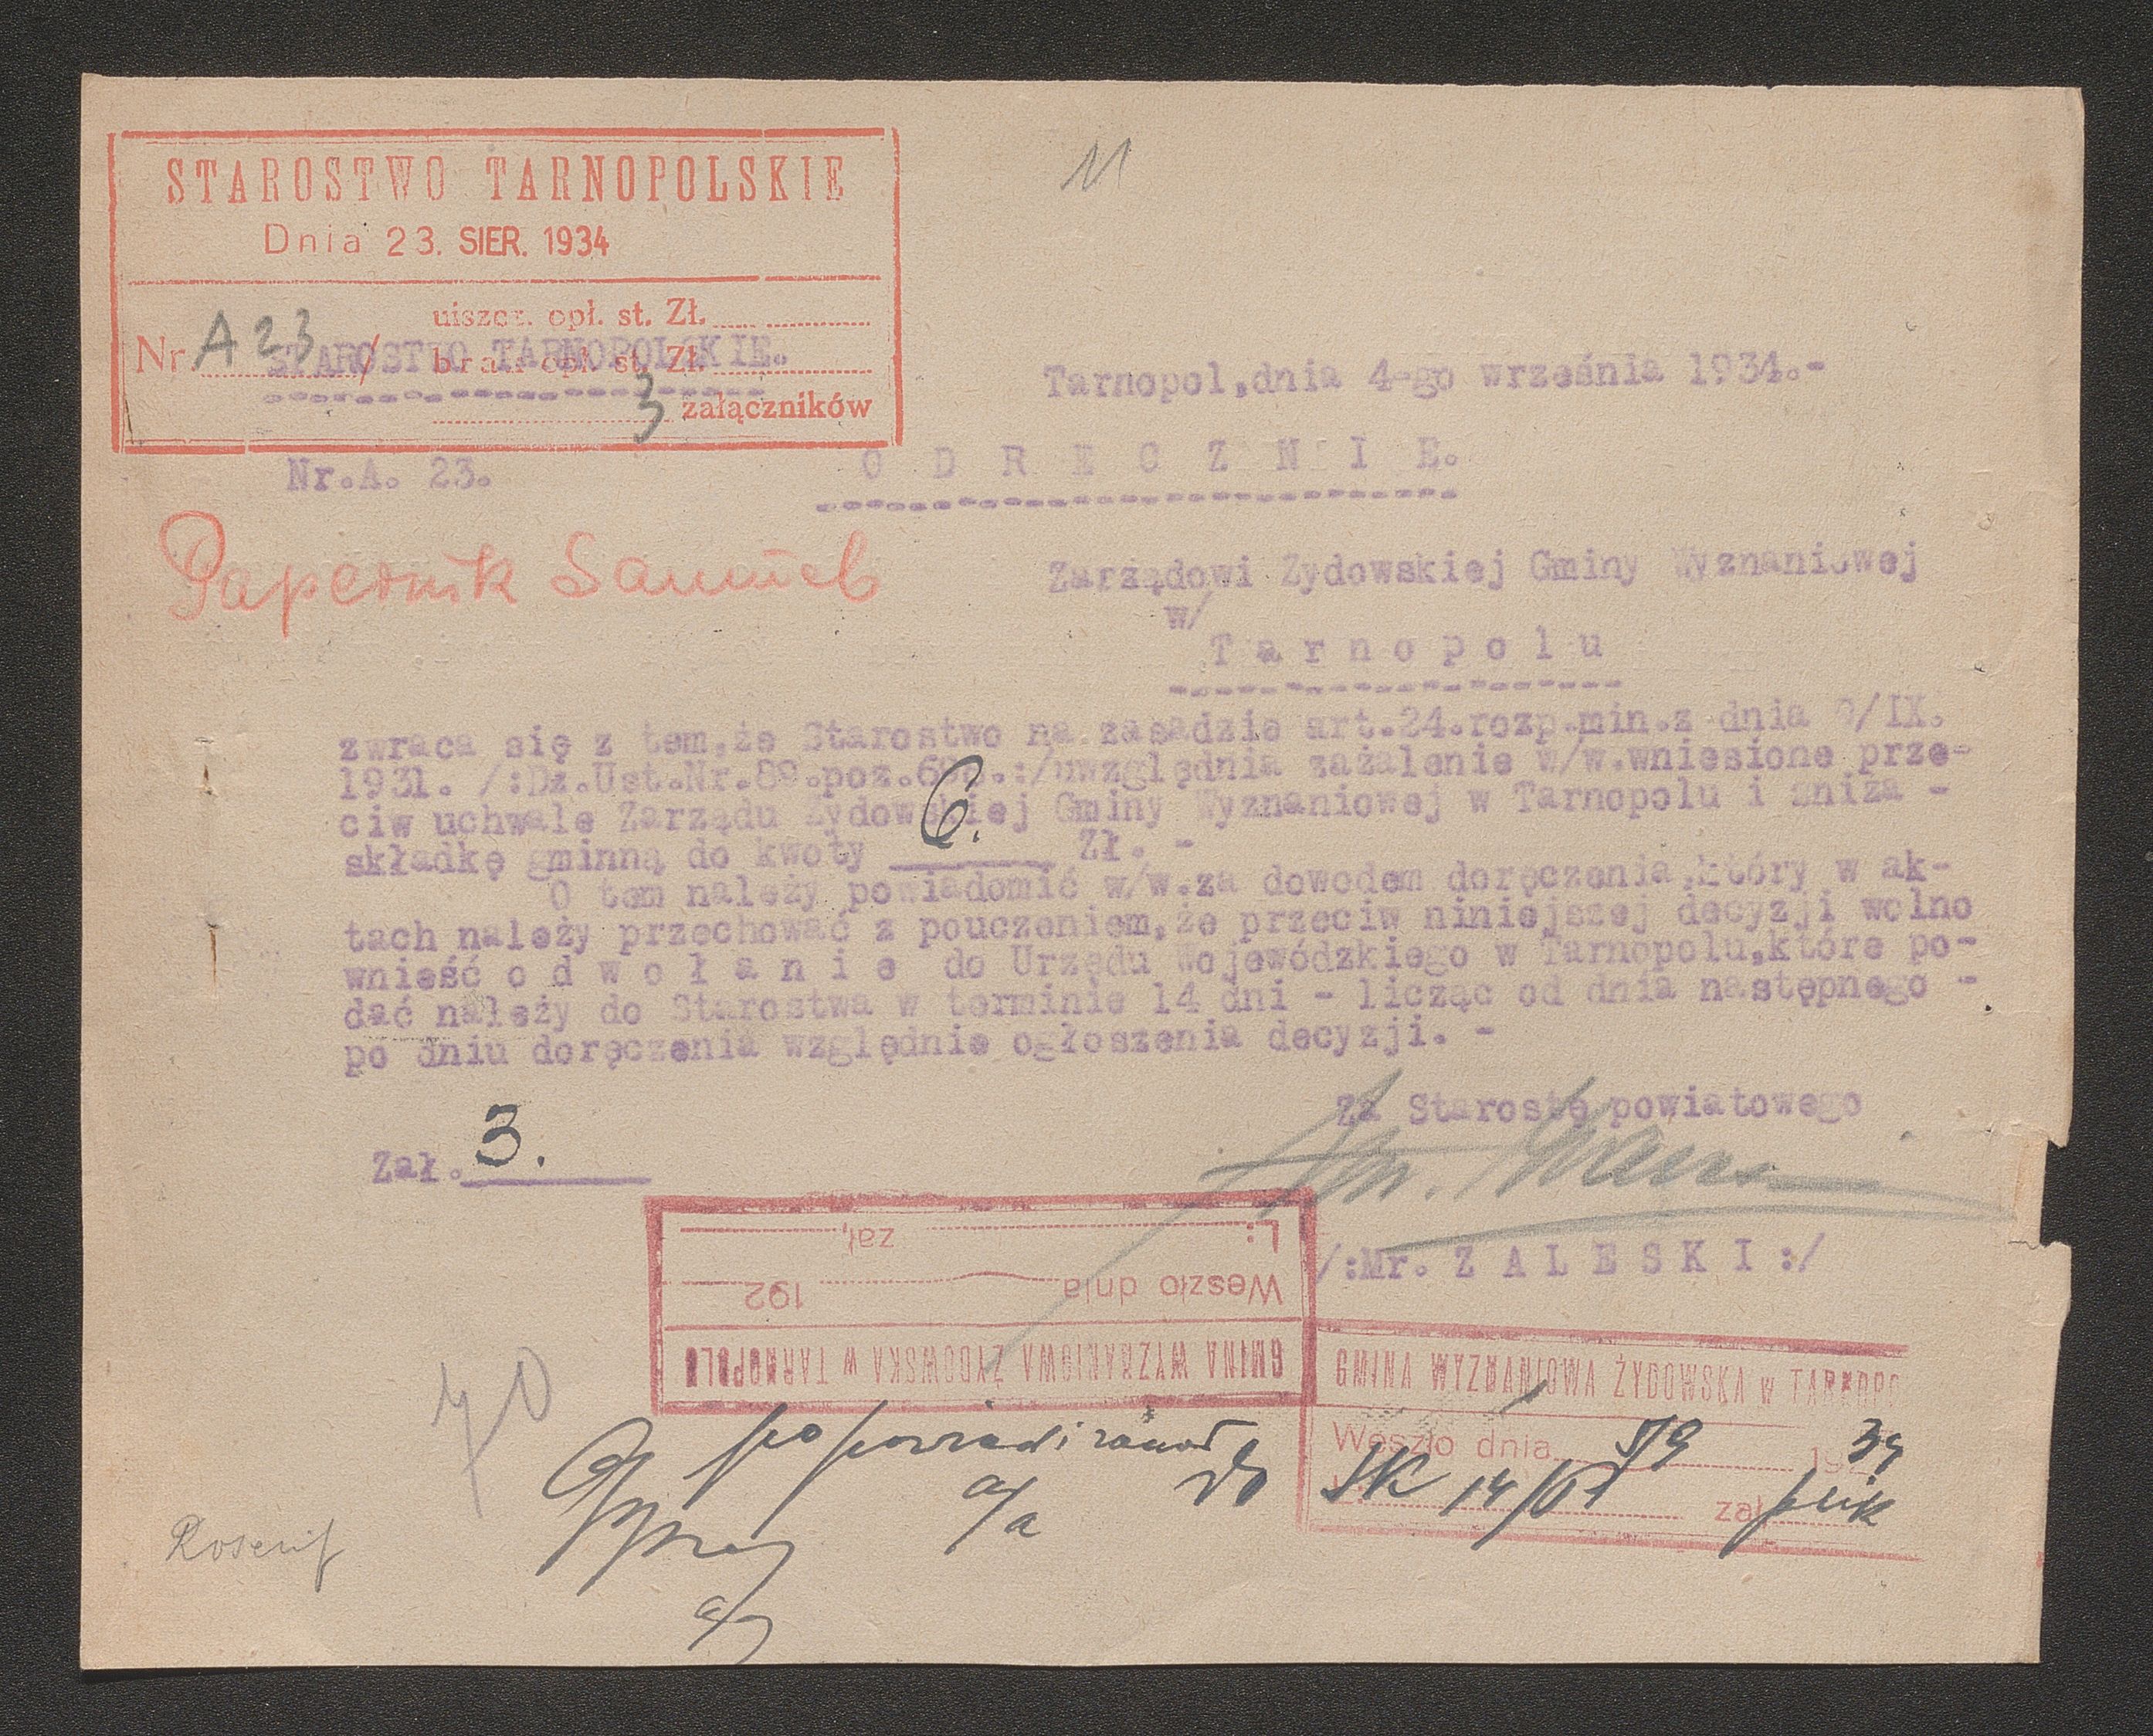 11
STAROSTWO TARNOPOLSKIE
Dnia 23. SIER. 1934
uiszcz. opł. st. Zł.
Nr A 23 /
brak opł. st. Zł.
3 załączników
STAROSTWO TARNOPOLSKIE.
Tarnopol,dnia 4-go września 1934.-
Nr.A. 23.
O D R E C Z N I E.
Papernik Samuel
Zarządowi Zydowskiej Gminy Wyznaniowej
w/
T a r n o p o l u
zwraca się z tem,że Starostwo na zasadzie art.24.rozp.min.z dnia /IX.
1931. /:Dz.Ust.Nr.89.poz. :/uwzględnia zażalenie w/w.wniesione prze-
ciw uchwale Zarządu Zydowskiej Gminy Wyznaniowej w Tarnopolu i zniża -
składkę gminną do kwoty 6. Zł. -
O tem należy powiadomić w/w.za dowodem doręczenia,który w ak-
tach należy przechować z pouczeniem,że przeciw niniejszej decyzji wolno
wnieść o d w o ł a n i e do Urzędu Wojewódzkiego w Tarnopolu,które po-
dać należy do Starostwa w terminie 14 dni - licząc od dnia następnego -
po dniu doręczenia względnie ogłoszenia decyzji. -
Za Starostę powiatowego
Zał. 3.
/:Mr. Z A L E S K I :/
GMINA WYZNANIOWA ŻYDOWSKA w TARNOPOLU
Weszło dnia 192
L: zał.
GMINA WYZNANIOWA ŻYDOWSKA w TARNOPO
Weszło dnia 5/9 1934
zał. plik
70
a/a
do
a/a